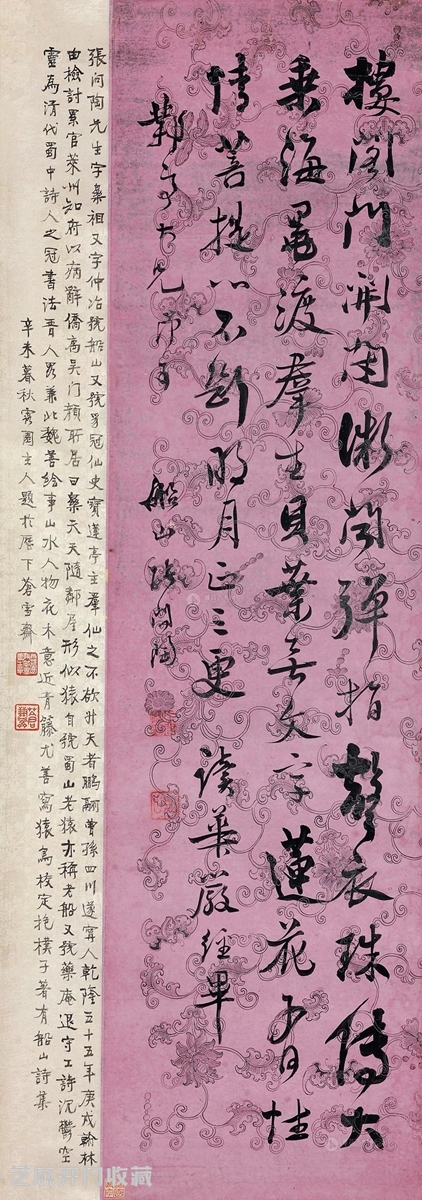 樓閣門開闔微聞彈指聲衣珠傳大
乘海渡羣生貝葉無文字蓮花有性
情菩提心不斷明月正三更 讀華嚴經畢
亭大兄 船山張問陶
張問陶先生字樂祖又字仲冶號船山又號蜀冠仙史寶蓮亭主羣仙之不欲升天者鵬翮曾孫四川遂寧人乾隆五十五年庚戌翰林
由檢討累官萊州知府以病辭僑寓吴门所居曰樂天天隨鄰屋形似猿自號蜀山老猿亦稱老船又號藥庵退守工詩沉鬱空
靈為清代蜀中詩人之冠書法晋人畧兼北魏善绘事山水人物花木意近青籐尤善寫猿為校定抱樸子著有船山詩集
辛未暮秋園主人題於歷下蒼雪齋
收藏